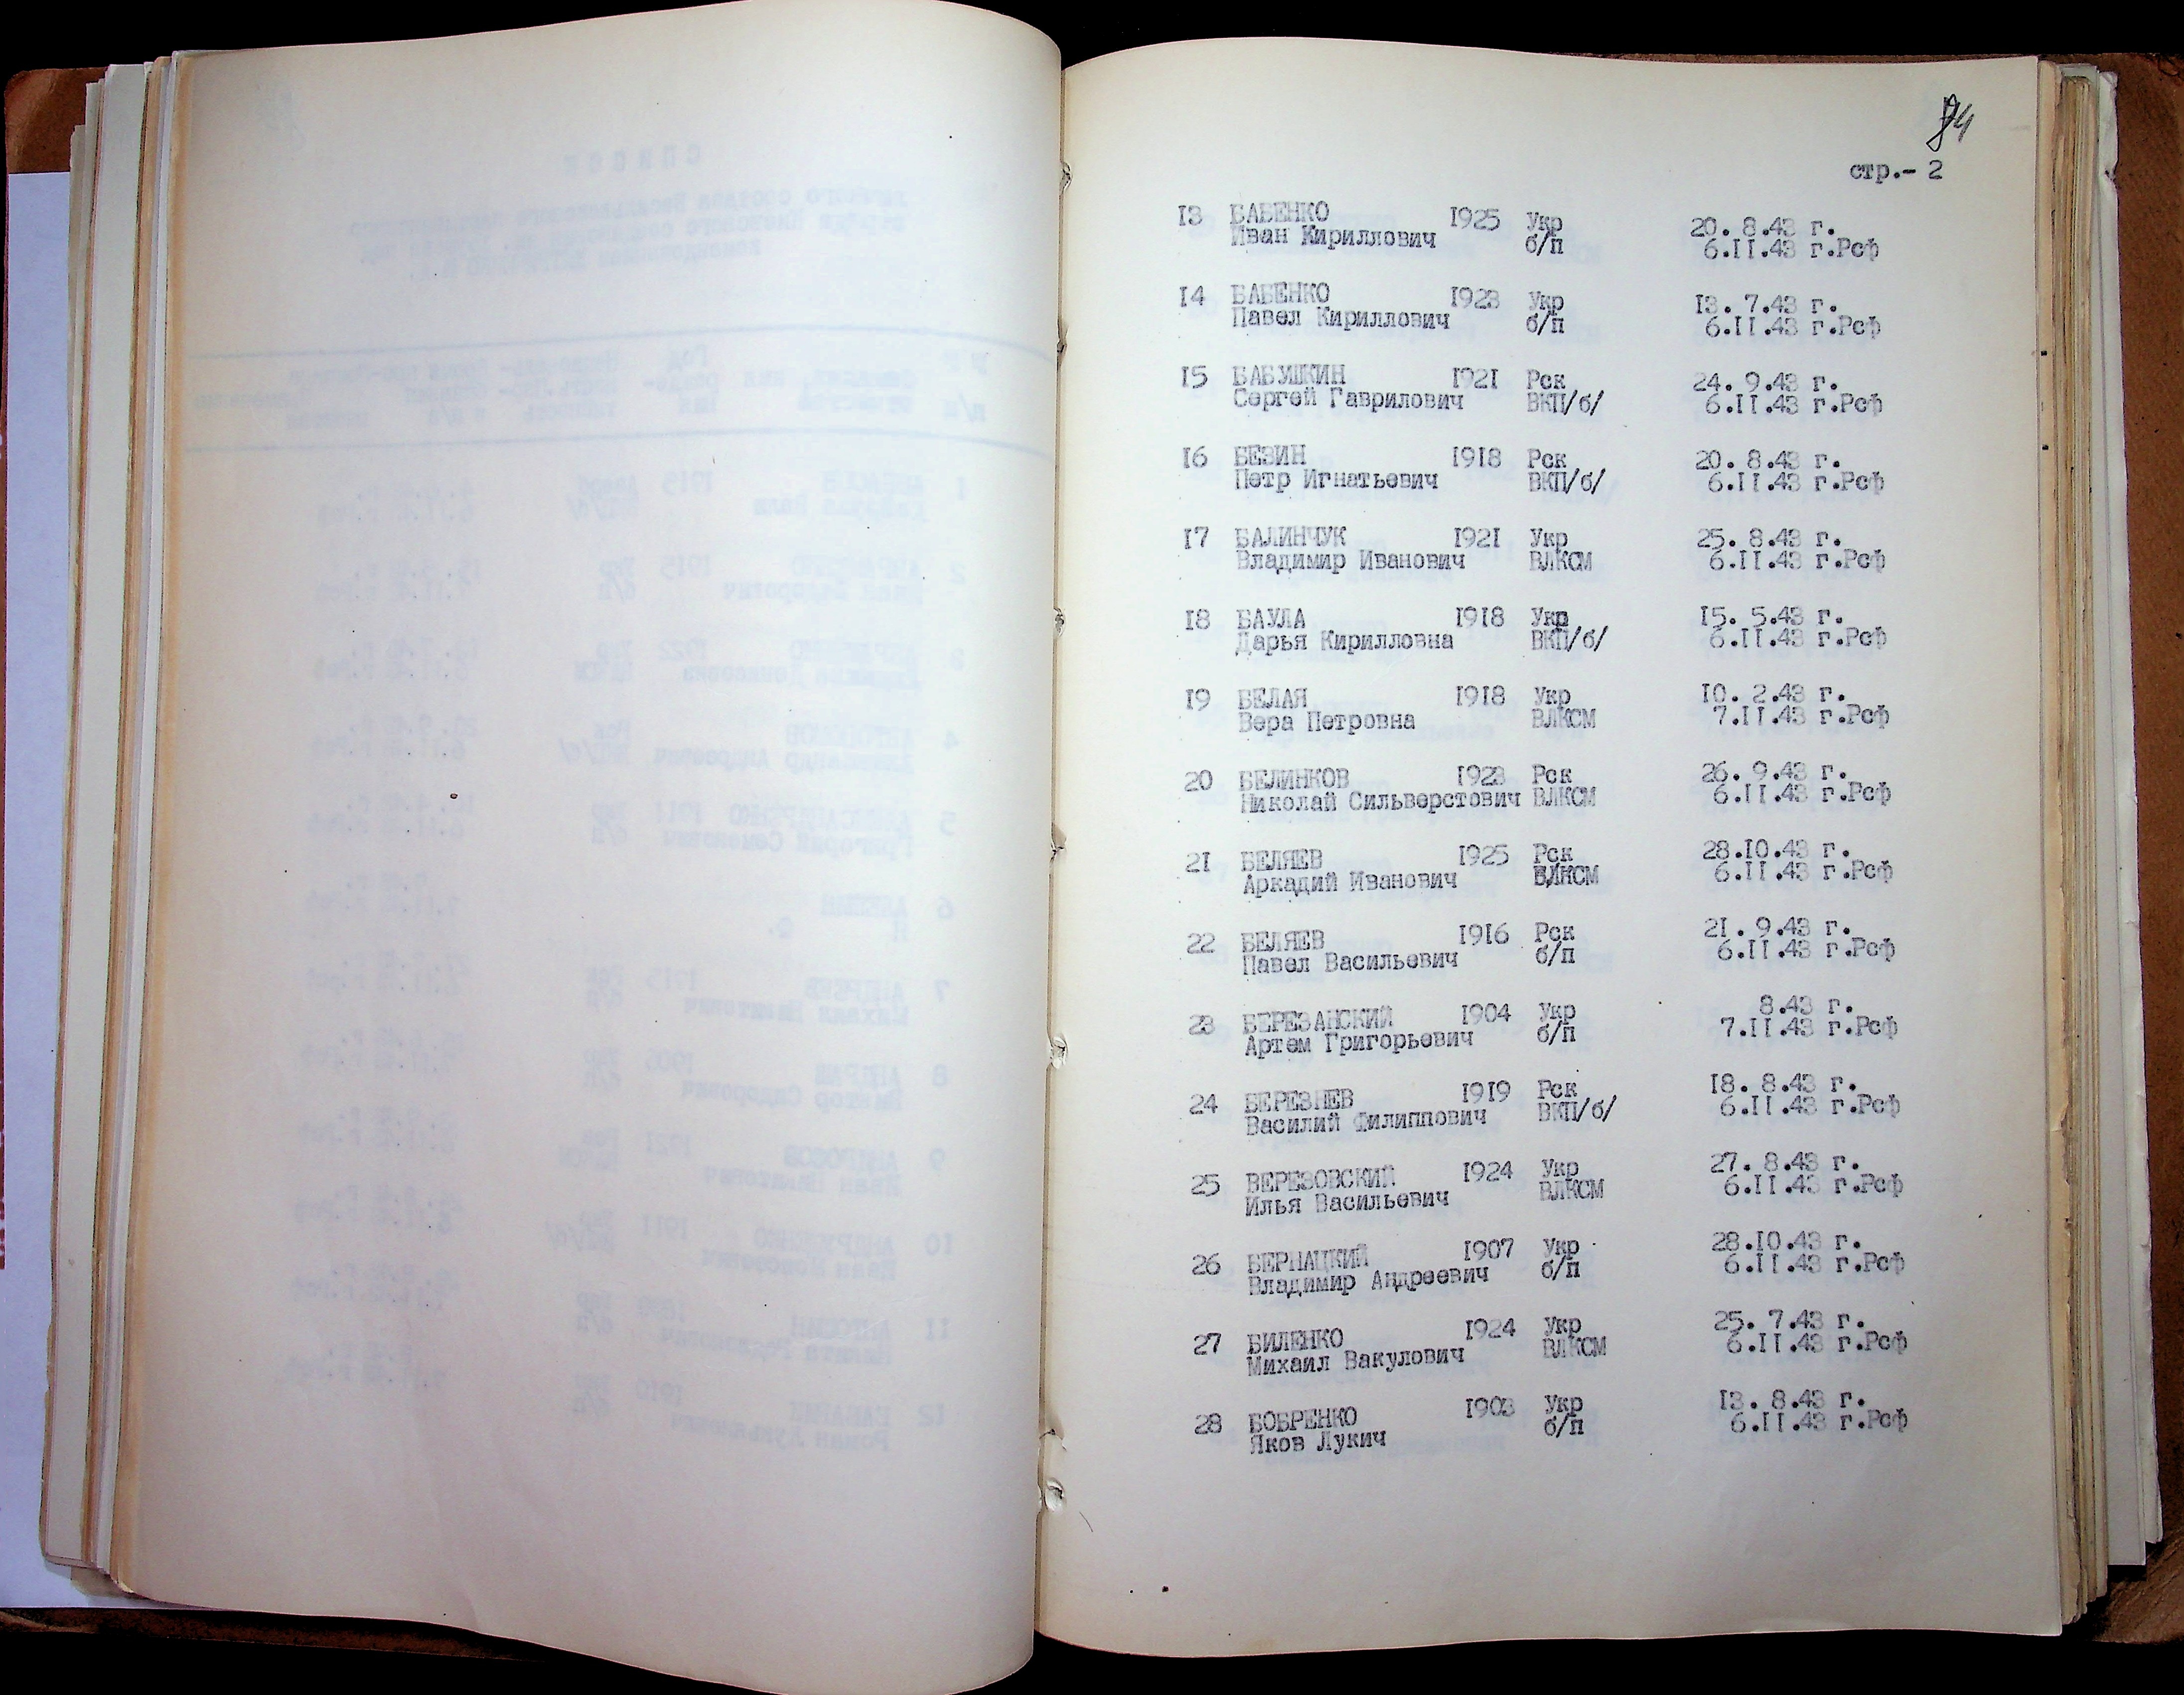 94
стр.- 2
13 БАБЕНКО 1925 Укр 20. 8.43 г.
Иван Кириллович б/п 6.II.43 г.Рсф
14 БАБЕНКО 1923 Укр 13. 7.43 г.
Павел Кириллович б/п 6.II.43 г.Рсф
15 БАБУШКИН 1921 Рск 24. 9.43 г.
Сергей Гаврилович ВКП/б/ 6.II.43 г.Рсф
16 БЕЗИН 1918 Рск 20. 8.43 г.
Петр Игнатьевич ВКП/б/ 6.II.43 г.Рсф
17 БАЛИНЧУК 1921 Укр 25. 8.43 г.
Владимир Иванович ВЛКСМ 6.II.43 г.Рсф
18 БАУЛА 1918 Укр 15. 5.43 г.
Дарья Кирилловна ВКП/б/ 6.II.43 г.Рсф
19 БЕЛАЯ 1918 Укр 10. 2.43 г.
Вера Петровна ВЛКСМ 7.II.43 г.Рсф
20 БЕЛИНКОВ 1923 Рск 26. 9.43 г.
Николай Сильверстович ВЛКСМ 6.II.43 г.Рсф
21 БЕЛЯЕВ 1925 Рск 28.10.43 г.
Аркадий Иванович ВЛКСМ 6.II.43 г.Рсф
22 БЕЛЯЕВ 1916 Рск 21. 9.43 г.
Павел Васильевич б/п 6.II.43 г.Рсф
23 БЕРЕЗАНСКИЙ 1904 Укр 8.43 г.
Артем Григорьевич б/п 7.II.43 г.Рсф
24 БЕРЕЗНЕВ 1919 Рск 18. 8.43 г.
Василий Филиппович ВКП/б/ 6.II.43 г.Рсф
25 ВЕРЕЗОВСКИЙ 1924 Укр 27. 8.43 г.
Илья Васильевич ВЛКСМ 6.II.43 г.Рсф
26 БЕРНАЦКИЙ 1907 Укр 28.10.43 г.
Владимир Андреевич б/п 6.II.43 г.Рсф
27 БИЛЕНКО 1924 Укр 25. 7.43 г.
Михаил Вакулович ВЛКСМ 6.II.43 г.Рсф
28 БОБРЕНКО 1903 Укр 13. 8.43 г.
Яков Лукич б/п 6.II.43 г.Рсф